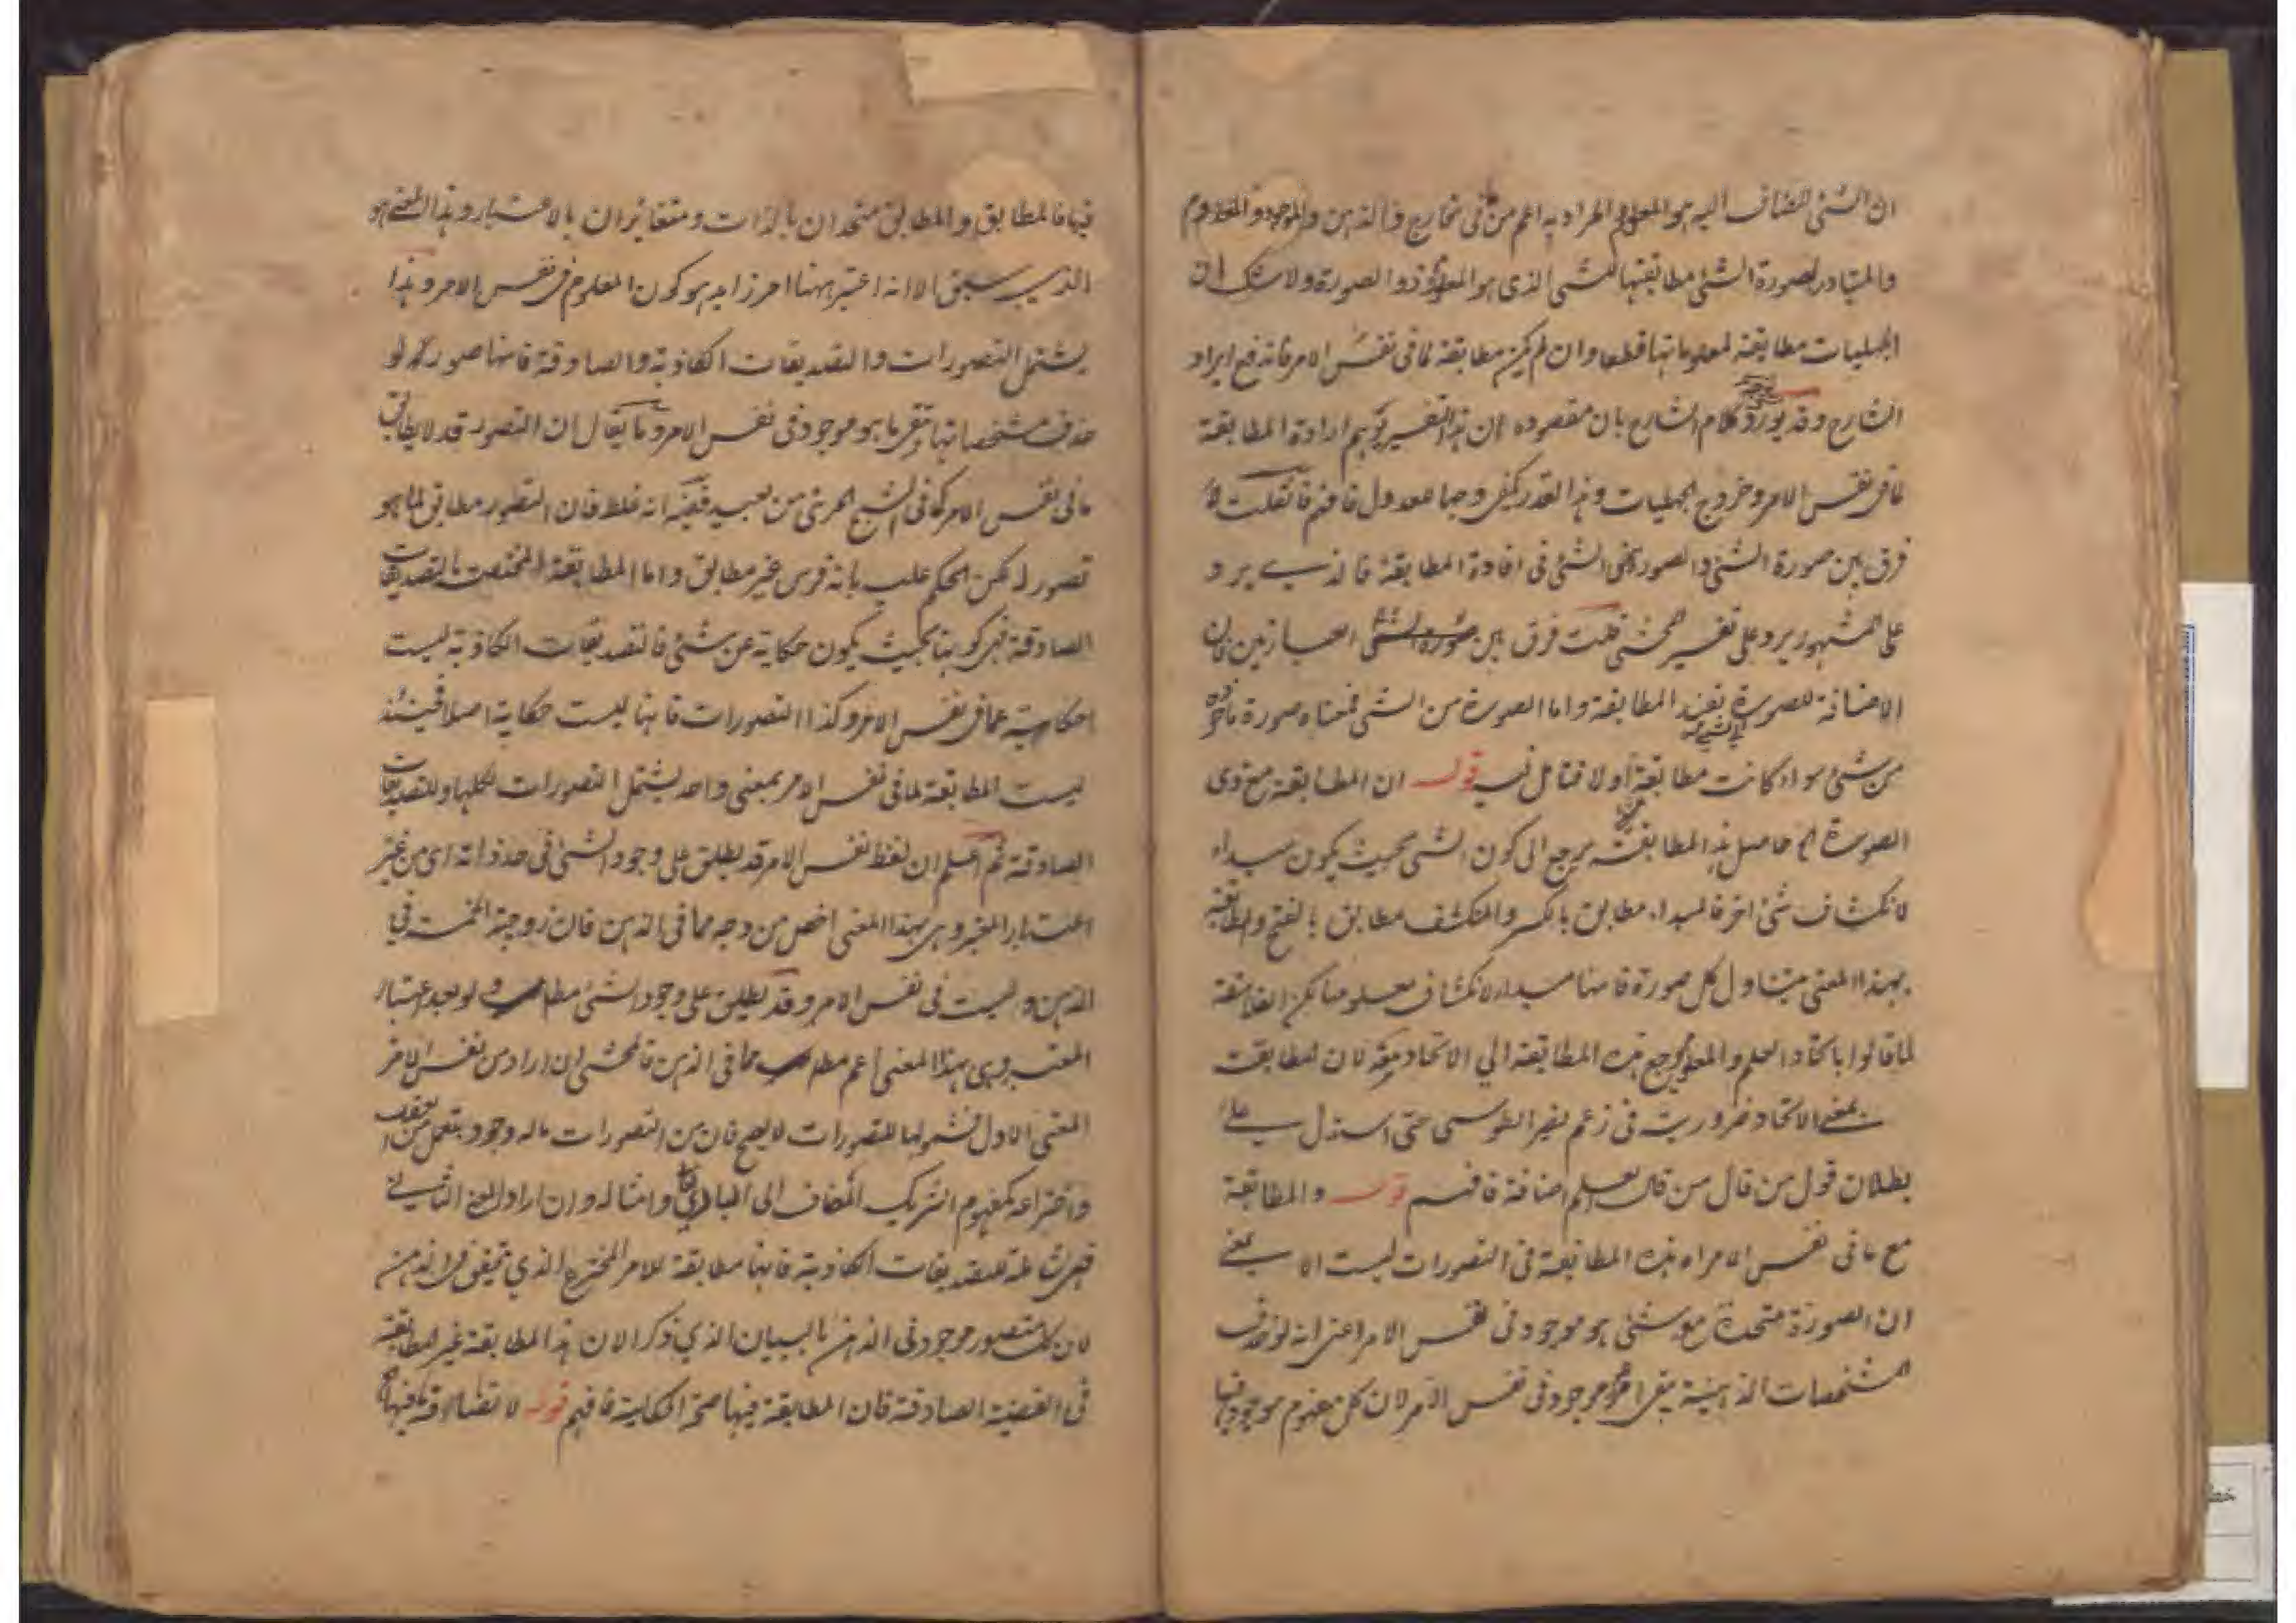 ان الشئ المضاف اليه هو المعلوم والمراد به اعم من في الخارج والذهن والموجود والمعدوم
والمتبادر لصورة الشئ مطابقتها للشئ الذى هو المعلوم ذو الصورة ولا شك ان
الجهليات مطابقة لمعلوماتها قطعا وان لم يكن مطابقة لما فى نفس الامر فاندفع ايراد
الشارح وقد كلام الشارح بان مقصوده ان هذا التفسير يوهم ارادة المطابقة
لما فى نفس الامر وخروج الجهليات وهذا القدر يكفى وجها للعدول فافهم فان قلت لا
فرق بين صورة الشئ والصورة من الشئ فى افادة المطابقة فالذى يرد
على المشهور يرد على تفسير المحشى قلت فرق بين العبارتين فان
الاضافة للصورة الى الشئ تفيد المطابقة واما الصورة من الشئ فمعناه صورة ماخوذة
من شئ سواء كانت مطابقة له اولا فتامل فيه قوله ان المطابقة مع ذى
الصورة الخ حاصل هذا المطابقة يرجع الى كون الشئ بحيث يكون مبداء
لانكشاف شئ اخر فالمبداء مطابق بالكسر والمنكشف مطابق بالفتح والمطابقة
بهذا المعنى يتناول كل صورة فانها مبداء لانكشاف معلومها لكن الفلاسفة
لما قالوا باتحاد العلم والمعلوم يرجع هذه المطابقة الى الاتحاد معه لان المطابقة
بمعنى الاتحاد ضرورية فى زعم نصير الطوسى حتى استدل على
بطلان قول من قال من قال العلم اضافة فافهم قوله والمطابقة
مع ما فى نفس الامر اه هذه المطابقة فى التصورات ليست الا بمعنى
ان الصورة متحدة مع شئ هو موجود فى نفس الامر اعنى انه لو حذف
المشخصات الذهنية بقى امر موجود فى نفس الامر لان كل مفهوم موجود فيها
فيها فالمطابق والمطابق متحدان بالذات ومتغايران بالاعتبار وهذا المعنى هو
الذى سبق الا انه اعتبر ههنا امر زايد هو كون المعلوم فى نفس الامر وهذا
يشتمل التصورات والتصديقات الكاذبة والصادقة فانها صور لو
حذف مشخصاتها بقى ما هو موجود فى نفس الامر وما يقال ان التصور قد لا يطابق
ما فى نفس الامر كما فى الشبح المرئى من بعيد ففيه انه غلط فان التصور مطابق لما هو
تصور له لكن الحكم عليه بانه فرس غير مطابق واما المطابقة المختصة بالتصديقات
الصادقة فهى كونها بحيث يكون حكاية عن شئ فالتصديقات الكاذبة ليست
حكاية عما فى نفس الامر وكذا التصورات فانها ليست حكاية اصلا فحينئذ
ليست المطابقة لما فى نفس الامر بمعنى واحد يشتمل التصورات كلها والتصديقات
الصادقة ثم اعلم ان لفظ نفس الامر قد يطلق على وجود الشئ فى حد ذاته اى من غير
اعتبار المعتبر وهى بهذا المعنى اخص من وجه مما فى الذهن فان زوجية الخمسة فى
الذهن وليست فى نفس الامر وقد يطلق على وجود الشئ مطلقا ولو بعد اعتبار
المعتبر وهى بهذا المعنى اعم مطلقا مما فى الذهن فالمحشى ان اراد من نفس الامر
المعنى الاول فشمولها للتصورات لا يصح فان من التصورات ما له وجود بتعمل من العقل
واختراعه كمفهوم الشريك المضاف الى البارى تعالى وامثاله وان اراد المعنى الثانى
فهى شاملة للتصديقات الكاذبة فانها مطابقة للامر المخترع الذى يتحقق فى الذهن
لان كل متصور موجود فى الذهن بالبيان الذى ذكر الا ان هذا المطابقة غير المطابقة
فى القضية الصادقة فان المطابقة فيها صحة الحكاية فافهم قوله لا تقتنا